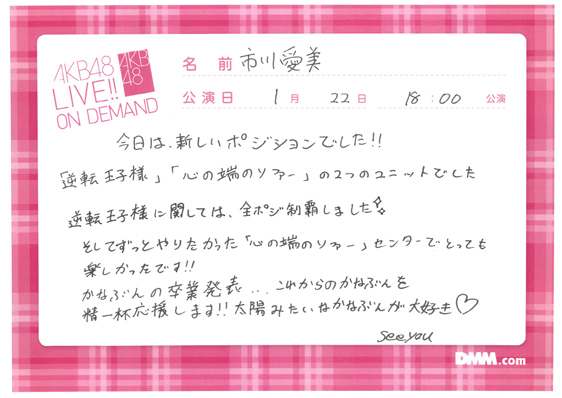 AKB48
LIVE!!
ON DEMAND
AKB
48
名 前 市川愛美
公演日 1月 22日 18:00 公演
今日は、新しいポジションでした!!
「逆転王子様」「心の端のソファー」の2つのユニットでした
逆転王子様に関しては、全ポジ制覇しました
そしてずっとやりたかった「心の端のソファー」センターでとっても
楽しかったです!!
かなぶんの卒業発表... これからのかなぶんを
精一杯応援します!! 太陽みたいなかなぶんが大好き♡
see you
DMM.com